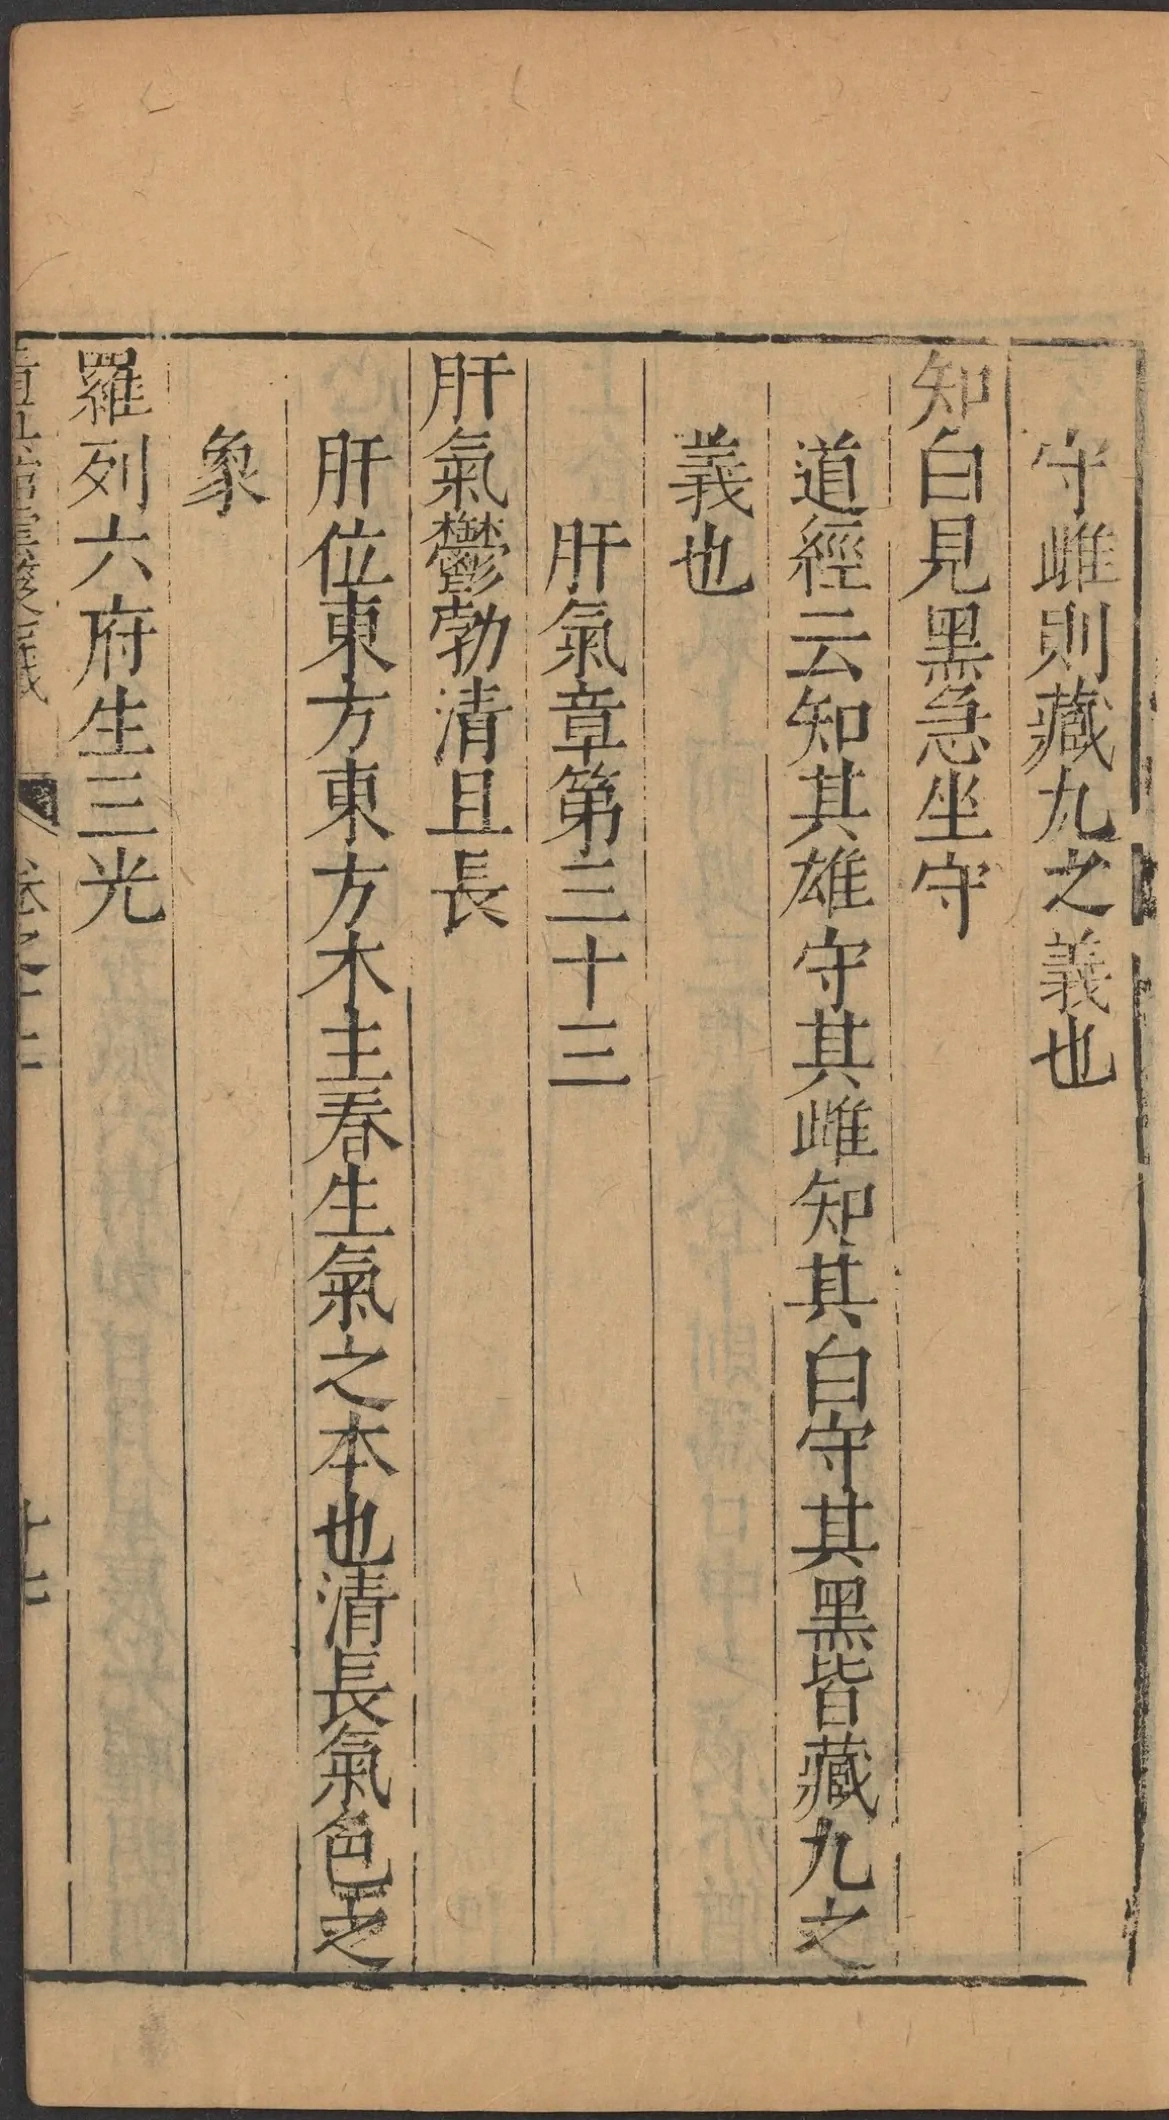 守雌則藏九之義也
知白見黑急坐守
道經云知其雄守其雌知其白守其黑皆藏九之
義也
肝氣章第三十三
肝氣鬱勃清且長
肝位東方東方木主春生氣之本也清長氣色之
象
羅列六府生三光
卷之十二
十七